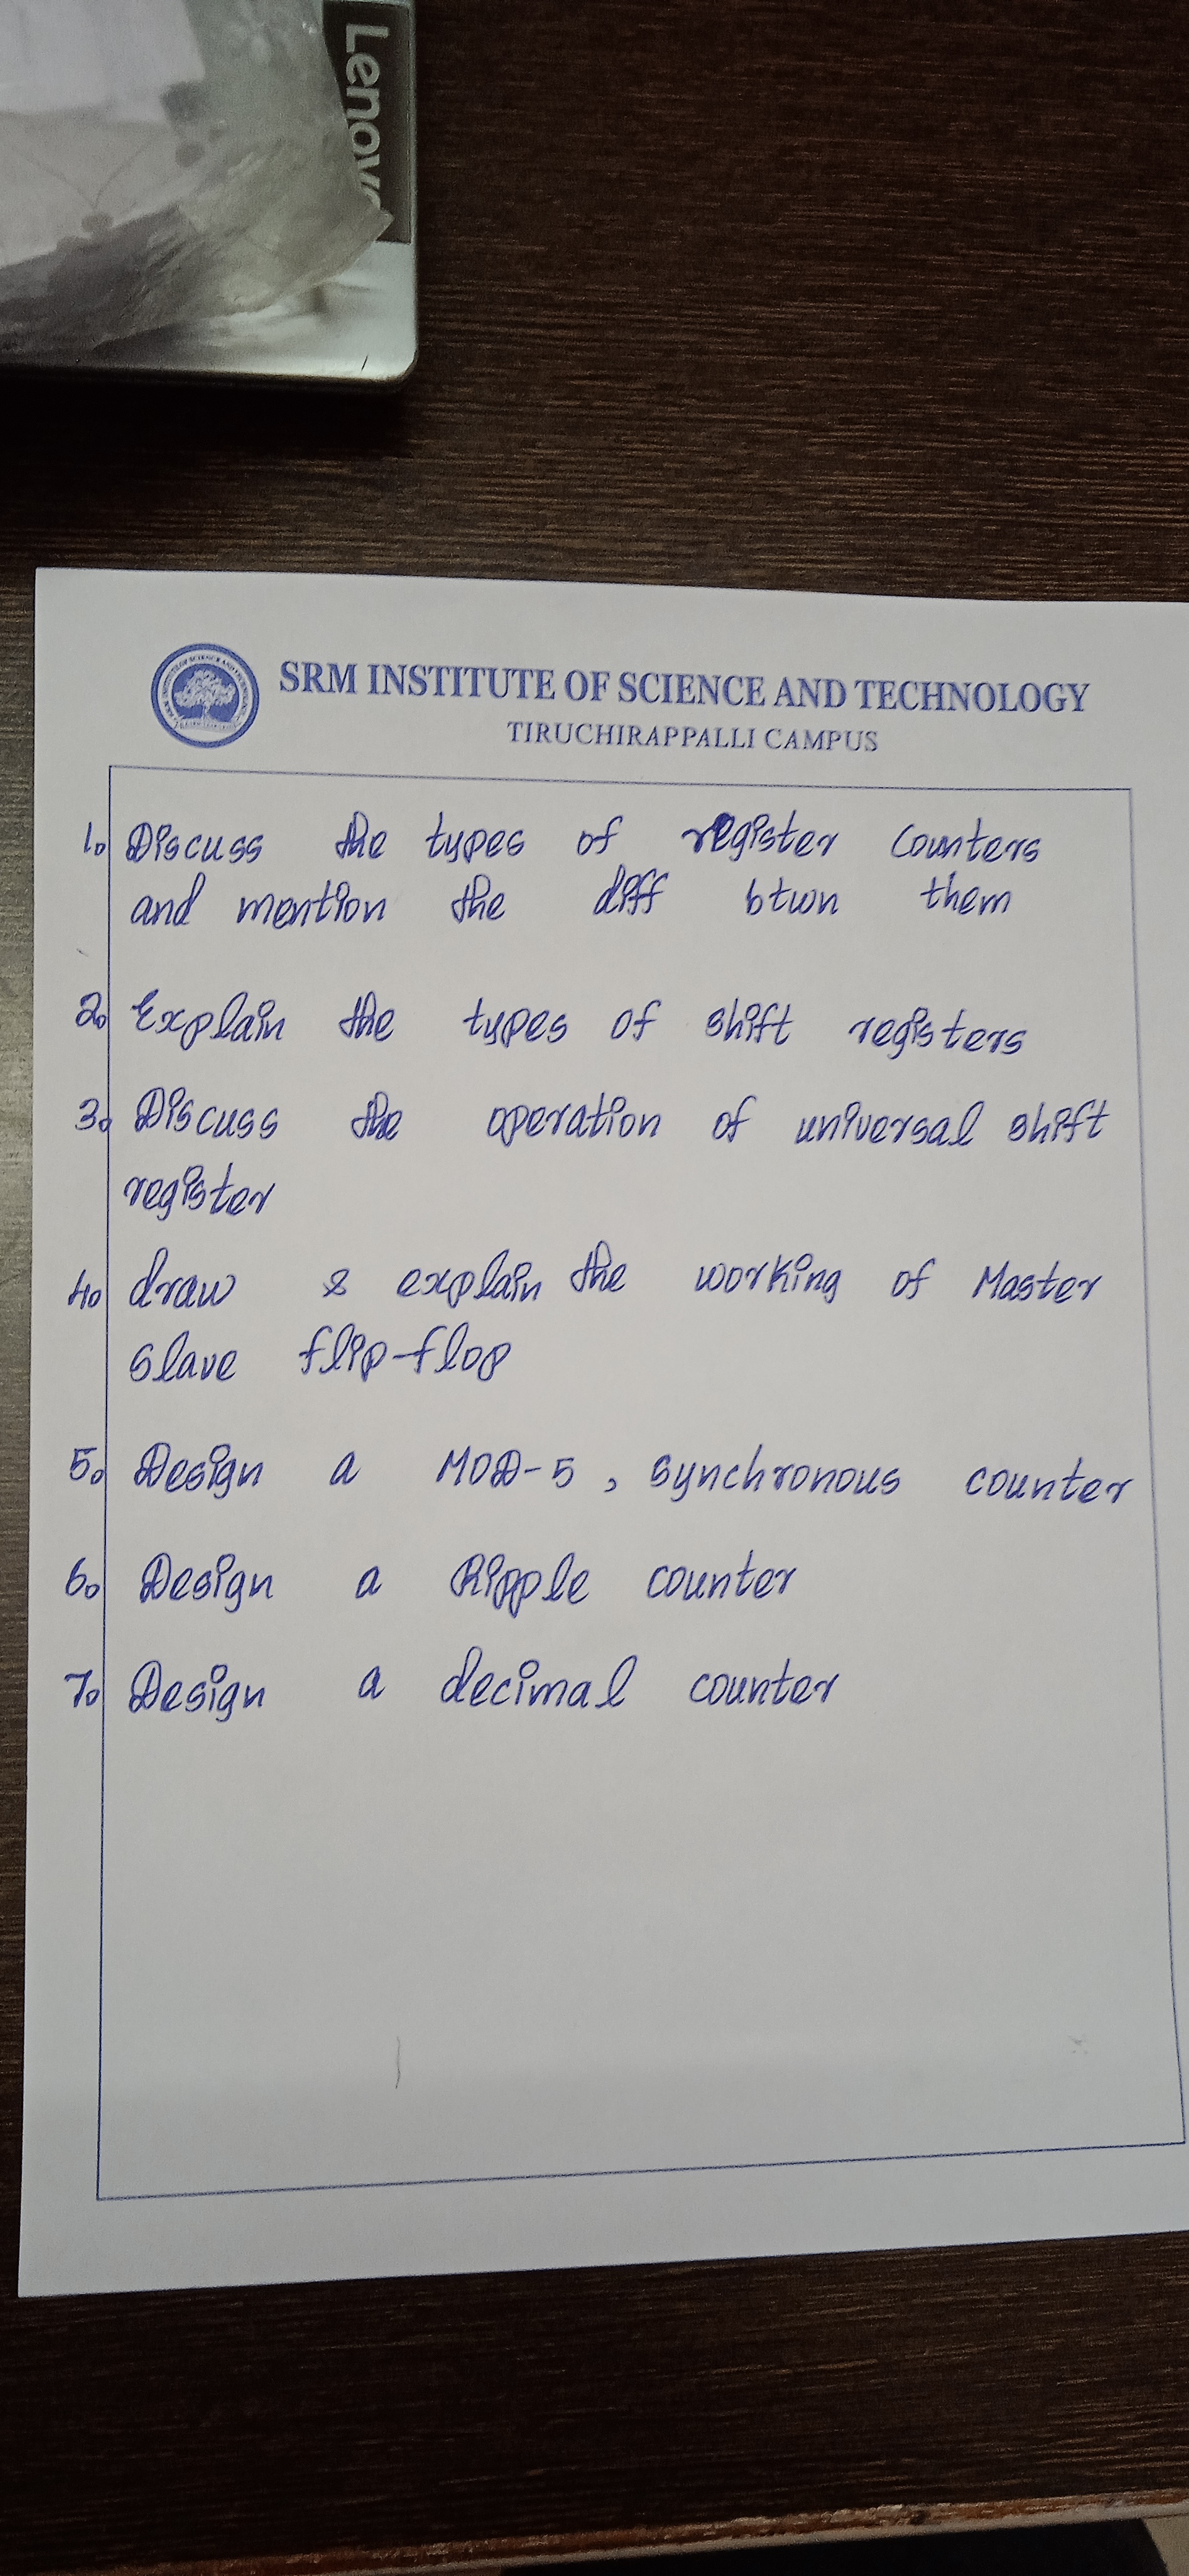 Lenov
SRM INSTITUTE OF SCIENCE AND TECHNOLOGY
TIRUCHIRAPPALLI CAMPUS
1. Discuss the types of register counters
and mention the diff btwn them
2. Explain the types of shift registers
3. Discuss the operation of universal shift
register
4. draw & explain the working of Master
slave flip-flop
5. Design a MOD-5, synchronous counter
6. Design a Ripple counter
7. Design a decimal counter